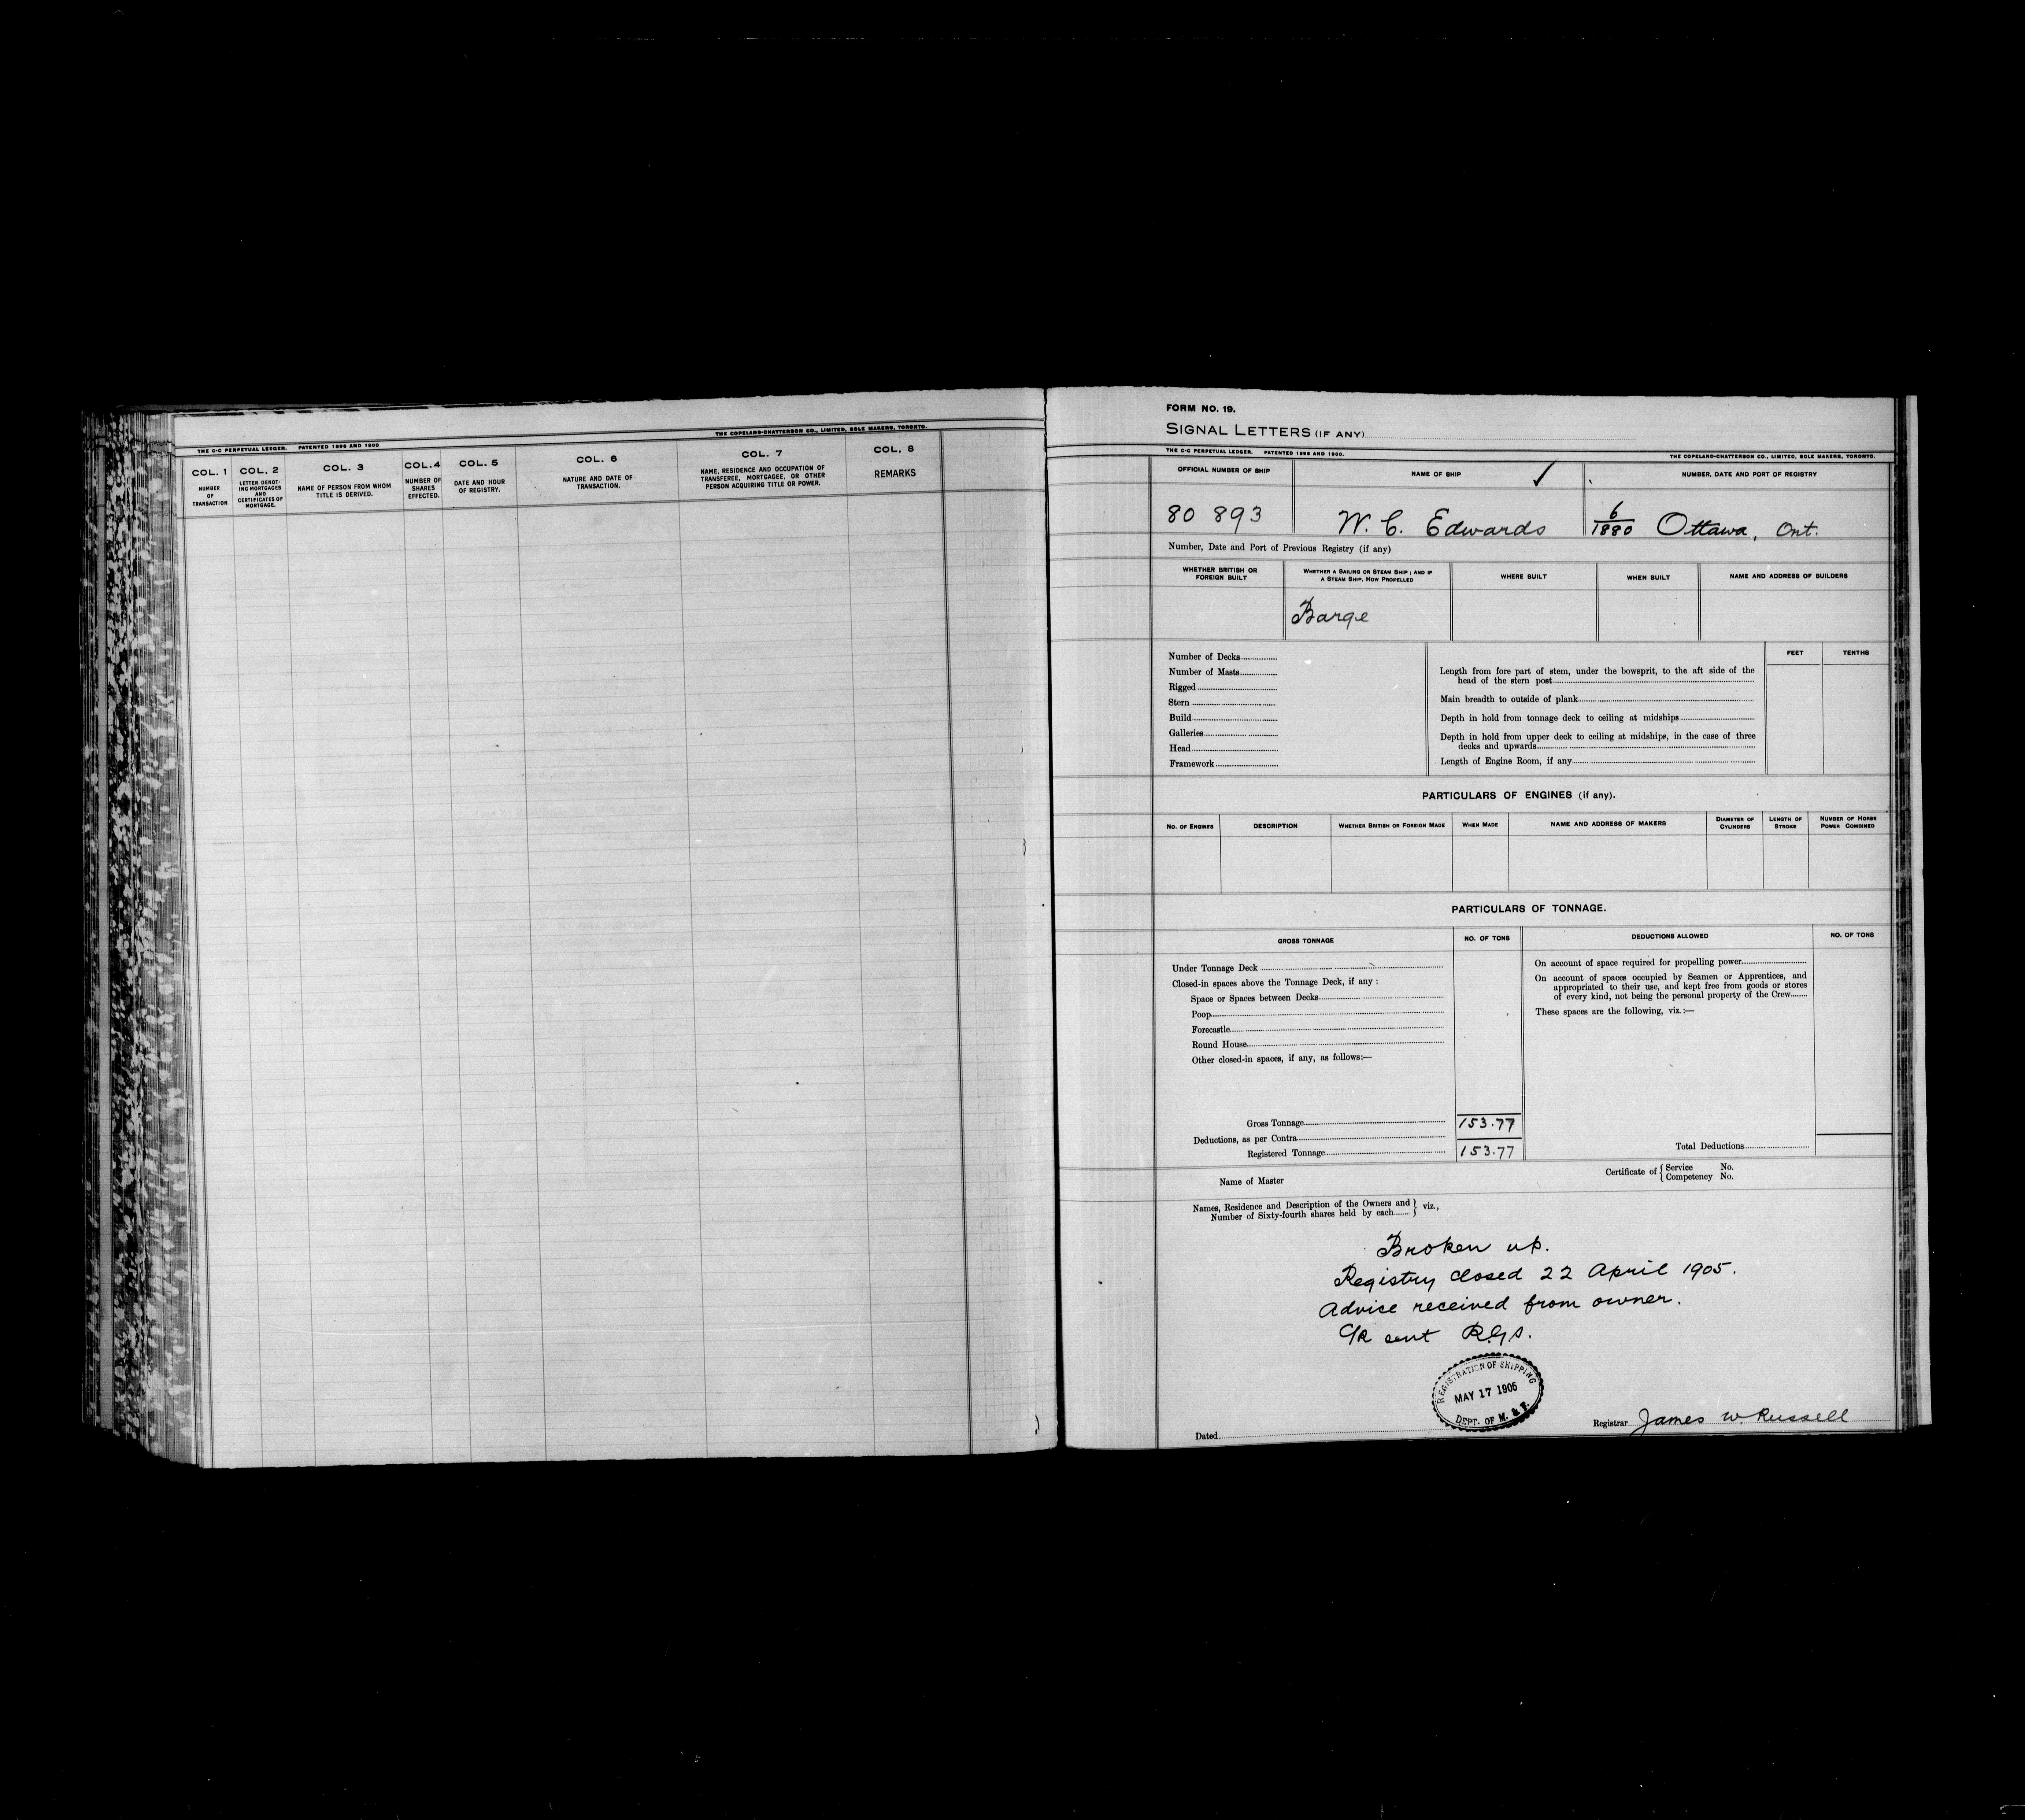 THE C-C PERPETUAL LEDGER. PATENTED 1896 AND 1900
THE COPELAND-CHATTERSON CO., LIMITED, SOLE MAKERS, TORONTO.
COL. 1
NUMBER
OF
TRANSACTION
COL. 2
LETTER DENOT-
ING MORTGAGES
AND
CERTIFICATES OF
MORTGAGE.
COL. 3
NAME OF PERSON FROM WHOM
TITLE IS DERIVED.
COL. 4
NUMBER OF
SHARES
EFFECTED.
COL. 5
DATE AND HOUR
OF REGISTRY.
COL. 6
NATURE AND DATE OF
TRANSACTION.
COL. 7
NAME, RESIDENCE AND OCCUPATION OF
TRANSFEREE, MORTGAGEE, OR OTHER
PERSON ACQUIRING TITLE OR POWER.
COL. 8
REMARKS
FORM NO. 19.
SIGNAL LETTERS (IF ANY)
THE C-C PERPETUAL LEDGER. PATENTED 1896 AND 1900.
THE COPELAND-CHATTERSON CO., LIMITED, SOLE MAKERS, TORONTO.
OFFICIAL NUMBER OF SHIP
NAME OF SHIP ✓
NUMBER, DATE AND PORT OF REGISTRY
80 893
W. C. Edwards
6/1880 Ottawa, Ont.
Number, Date and Port of Previous Registry (if any)
WHETHER BRITISH OR
FOREIGN BUILT
WHETHER A SAILING OR STEAM SHIP; AND IF
A STEAM SHIP, HOW PROPELLED
WHERE BUILT
WHEN BUILT
NAME AND ADDRESS OF BUILDERS
Barge
Number of Decks
Number of Masts
Rigged
Stern
Build
Galleries
Head
Framework
FEET
TENTHS
Length from fore part of stem, under the bowsprit, to the aft side of the
head of the stern post
Main breadth to outside of plank
Depth in hold from tonnage deck to ceiling at midships
Depth in hold from upper deck to ceiling at midships, in the case of three
decks and upwards
Length of Engine Room, if any
PARTICULARS OF ENGINES (if any).
NO. OF ENGINES
DESCRIPTION
WHETHER BRITISH OR FOREIGN MADE
WHEN MADE
NAME AND ADDRESS OF MAKERS
DIAMETER OF
CYLINDERS
LENGTH OF
STROKE
NUMBER OF HORSE
POWER COMBINED
PARTICULARS OF TONNAGE.
GROSS TONNAGE
NO. OF TONS
DEDUCTIONS ALLOWED
NO. OF TONS
Under Tonnage Deck
Closed-in spaces above the Tonnage Deck, if any:
Space or Spaces between Decks
Poop
Forecastle
Round House
Other closed-in spaces, if any, as follows:—
Gross Tonnage 153.77
Deductions, as per Contra
Registered Tonnage 153.77
On account of space required for propelling power
On account of spaces occupied by Seamen or Apprentices, and
appropriated to their use, and kept free from goods or stores
of every kind, not being the personal property of the Crew
These spaces are the following, viz.:—
Total Deductions
Name of Master
Certificate of { Service No.
Competency No.
Names, Residence and Description of the Owners and
Number of Sixty-fourth shares held by each } viz.,
Broken up.
Registry closed 22 April 1905.
Advice received from owner.
C/R sent R.G.S.
REGISTRATION OF SHIPPING
MAY 17 1905
DEPT. OF M. & F.
Dated
Registrar James W. Russell